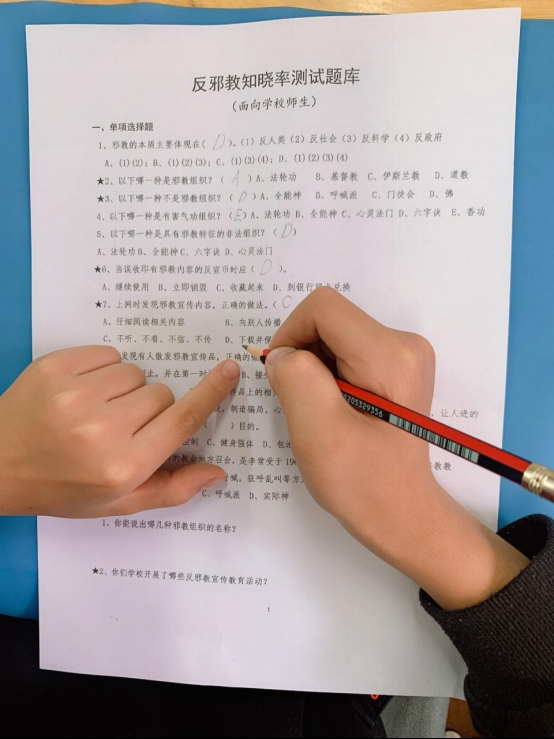 反邪教知晓率测试题库
（面向学校师生）
一、单项选择题
1、邪教的本质主要体现在（ D ）。(1)反人类 (2)反社会 (3)反科学 (4)反政府
A、(1)(2)；B、(1)(2)(3)；C、(1)(3)(4)；D、(1)(2)(3)(4)
★2、以下哪一种是邪教组织？（ A ）A、法轮功 B、基督教 C、伊斯兰教 D、道教
★3、以下哪一种不是邪教组织？（ D ）A、全能神 B、呼喊派 C、门徒会 D、佛
4、以下哪一种是有害气功组织？（E）A、法轮功 B、全能神 C、心灵法门 D、六字诀 E、香功
5、以下哪一种是具有邪教特征的非法组织？（ D）
A、法轮功 B、全能神 C、六字诀 D、心灵法门
★6、当误收印有邪教内容的反宣币时应（ D ）。
A、继续使用 B、立即销毁 C、收藏起来 D、到银行 兑换
★7、上网时发现邪教宣传内容，正确的做法。（ C
A、仔细阅读相关内容 B、向别人传播
C、不听、不看、不信、不传 D、下载并保
发现有人散发邪教宣传品，正确的
止，并在第一时 B、接
传品上的相
，制造骗局，心 ，让人进的
（ ）目的。
制 C、健身强体 D、包
的教会地方召会，是李常受于19 教教
喊，狂呼乱叫等方
C、呼喊派 D、实际神
1、你能说出哪几种邪教组织的名称？
★2、你们学校开展了哪些反邪教宣传教育活动？
1
6205329356